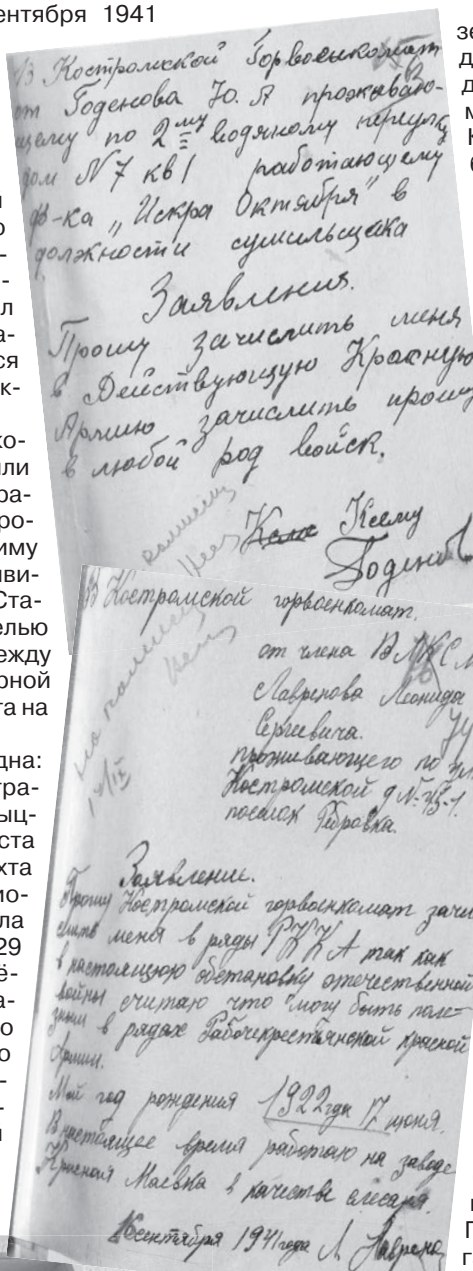 ентября 1941
В Костромской Горвоенкомат
от Годенова Ю. А прожываю-
щему по 2му водяному переулку
дом N7 кв1 работающему
ф-ка „Искра Октября" в
должности сушильщака
Заявления.
Прошу зачислить меня
в Действующую Красную
Армию зачислить прошу
в любой род войск.
Ксему
Годенов
В Костромской горвоенкомат.
от члена ВЛКСМ
Лавренова Леонида
Сергиевича.
проживающего по ул
Костромской д №
поселок
Заявление.
Прошу Костромской горвоенкомат зачи
слить меня в ряды РККА так как
в настоящую обстановку отечественной
войны считаю что могу быть поле=
зным в рядах Рабочекрестьянской красной
Армии.
Мой год рождения 1922 года 17 июня.
В настоящее время работаю на заводе
Красная Маевка в качестве слесаря.
16 сентября 1941 года Л Лаврено
л
ся
к-
ко-
или
ра-
ро-
иму
иви-
Ста-
елью
ежду
рной
та на
дна:
тра-
ыц-
ста
хта
ио-
ла
29
ё-
а-
о
о
зе
д
д
м
К